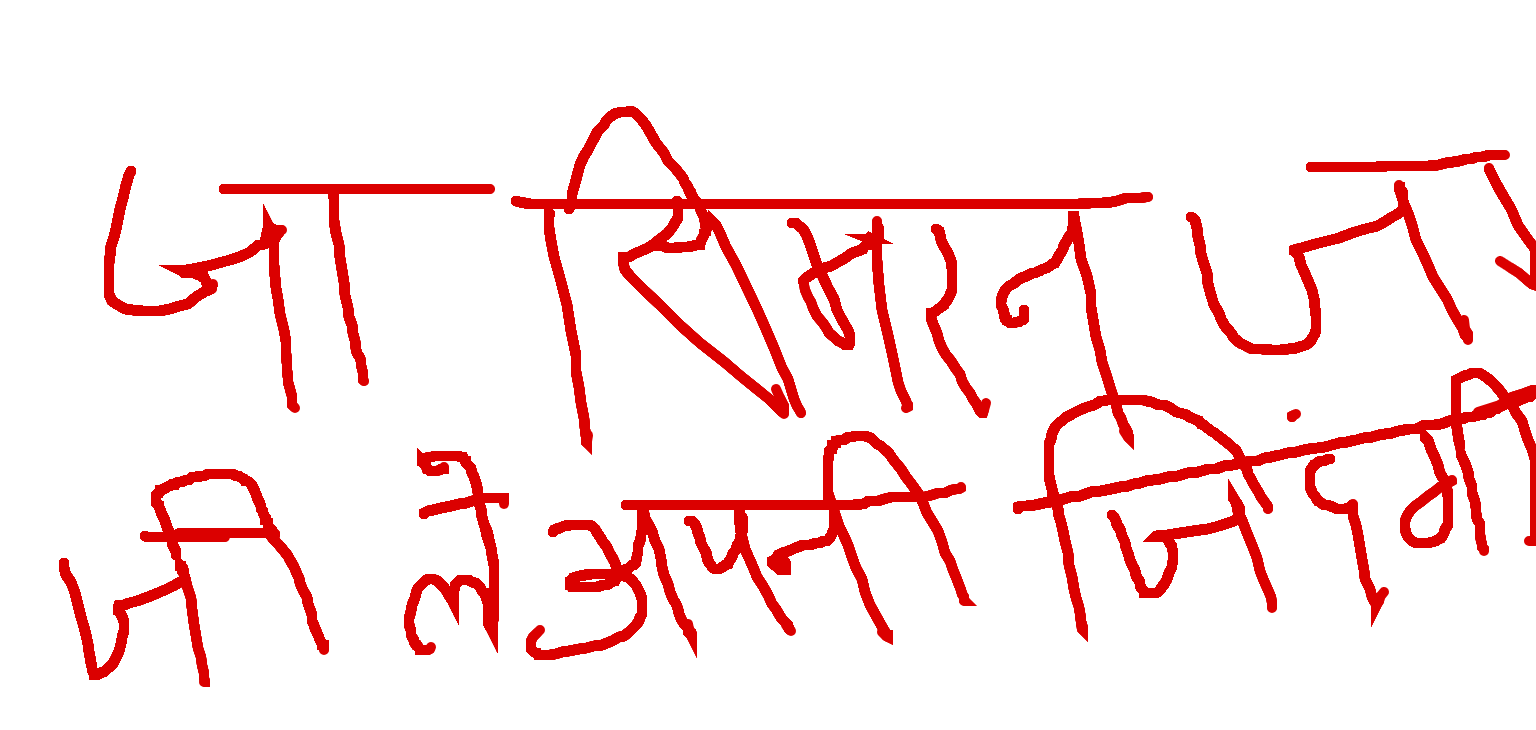 जा सिमरन जा
जी ले अपनी जिंदगी